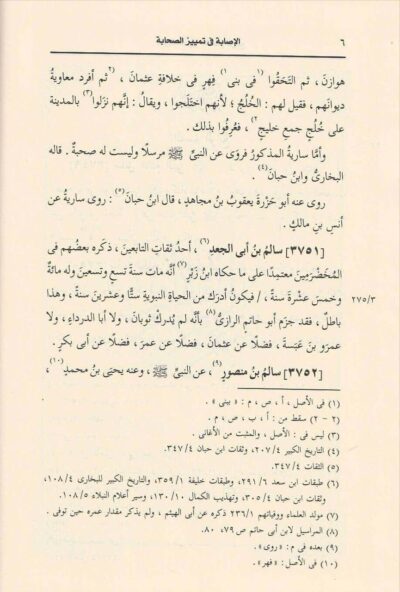 ٦ الإصابة فى تمييز الصحابة
هوازنَ ، ثم التَحَقُوا (١فى بنى١) فِهرٍ فى خلافةِ عثمانَ ، (٢ثم أفرد معاويةُ
ديوانَهم ، فقيل لهم : الخُلْجُ ؛ لأنهم اختَلَجوا ، ويقالُ : إنَّهم نزَلوا(٣) بالمدينة
على خُلُجٍ جمع خليجٍ٢) ، فعُرِفُوا بذلك .
وأمَّا ساريةُ المذكورُ فروَى عن النبىِّ ﷺ مرسلًا وليست له صحبةٌ . قاله
البخارىُّ وابنُ حبانَ(٤) .
روى عنه أبو حَزْرةَ يعقوبُ بنُ مجاهدٍ ، قال ابنُ حبانَ(٥) : روى ساريةُ عن
أنسِ بنِ مالكٍ .
[٣٧٥١] سالمُ بنُ أبى الجعدِ(٦) ، أحدُ ثقاتِ التابعينَ ، ذكَره بعضُهم فى
المُخَضْرَمِينَ معتمِدًا على ما حكاه ابنُ زَبْرٍ(٧) أنَّه مات سنةَ تسعٍ وتسعينَ وله مائةٌ
وخمسَ عشْرةَ سنةً ، / فيكونُ أدرَك من الحياةِ النبويةِ ستًّا وعشرينَ سنةً ، وهذا
٢٧٥/٣
باطلٌ ، فقد جزَم أبو حاتمٍ الرازىُّ(٨) بأنَّه لم يُدرِكْ ثوبانَ ، ولا أبا الدرداءِ ، ولا
عمرَو بنَ عَبَسَةَ ، فضلًا عن عثمانَ ، فضلًا عن عمرَ ، فضلًا عن أبى بكرٍ .
[٣٧٥٢] سالمُ بنُ منصورٍ(٩) ، عن النبىِّ ﷺ ، وعنه يحيَى بنُ محمدٍ(١٠) ،
(١) فى الأصل ، أ ، ص ، م : « بينى » .
(٢ - ٢) سقط من : أ ، ب ، ص ، م .
(٣) ليس فى : الأصل ، والمثبت من الأغانى .
(٤) التاريخ الكبير ٢٠٧/٤، وثقات ابن حبان ٣٤٧/٤.
(٥) الثقات ٣٤٧/٤.
(٦) طبقات ابن سعد ٢٩١/٦، وطبقات خليفة ٣٥٩/١، والتاريخ الكبير للبخارى ١٠٨/٤،
وثقات ابن حبان ٣٠٥/٤، وتهذيب الكمال ١٣٠/١٠، وسير أعلام النبلاء ١٠٨/٥.
(٧) مولد العلماء ووفياتهم ٢٣٦/١ ذكره عن أبى الهيثم ، ولم يذكر مقدار عمره حين توفى .
(٨) المراسيل لابن أبى حاتم ص ٧٩، ٨٠.
(٩) بعده فى م : «روى» .
(١٠) فى الأصل : «فهر» .